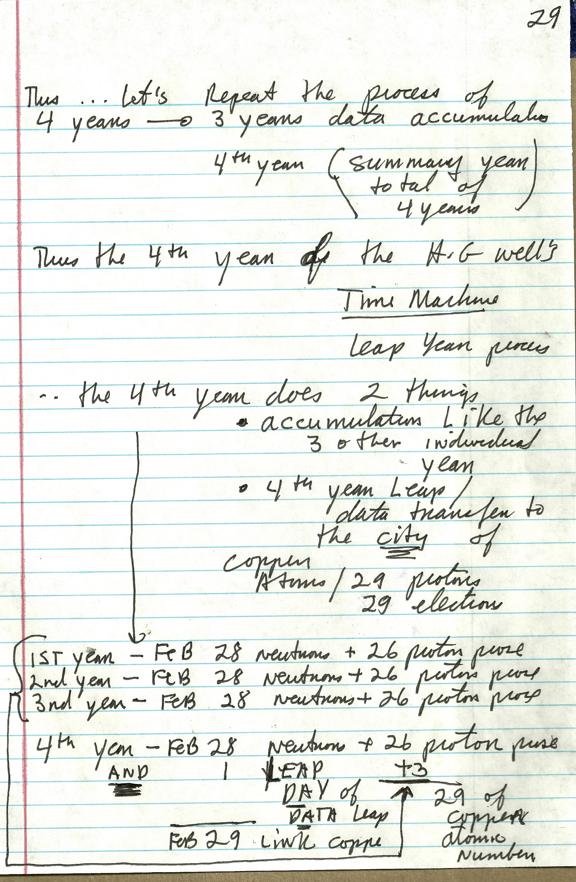 29
Thus ... Let's Repeat the process of
4 years → 3 years data accumulatio
4th year (summary year
total of
4 years)
Thus the 4th year of the H.G well's
Time Machine
Leap Year process
.. the 4th year does 2 things
• accumulation Like the
3 other individual
year
• 4th year Leap/
data transfer to
the city of
copper
Atoms / 29 protons
29 election
1ST year - FeB 28 neutrons + 26 proton
2nd year - FeB 28 neutrons + 26 protons
3nd year - FeB 28 neutrons + 26 proton
4th year - FeB 28 neutrons + 26 proton
AND 1 LEAP +3
DAY of 29 of
DATA Leap copper
FeB 29 Link coppe atomic
Number